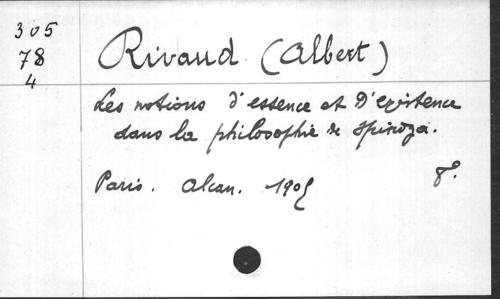 305
78
4
Rivaud (Albert)
Les notions d'essence et d'existence
dans la philosophie de Spinoza.
Paris. Alcan. 1905 8°.